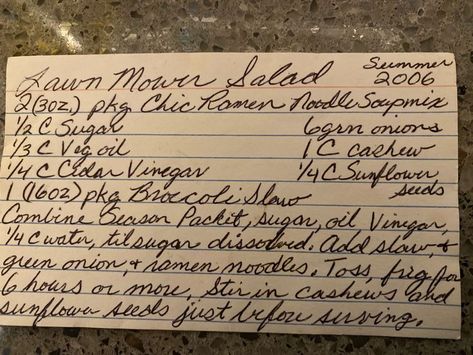 Lawn Mower Salad Summer 2006
2 (3oz.) pkg Chic Ramen Noodle Soupmix
1/2 C Sugar 6 grn onions
1/3 C Veg oil 1 C cashew
1/4 C Cidar Vinegar 1/4 C Sunflower seeds
1 (16oz) pkg Broccoli Slaw
Combine Season Packet, sugar, oil, Vinegar,
1/4 C water, til sugar dissolved. Add slaw, +
green onion, + ramen noodles. Toss, frig for
6 hours or more. Stir in cashews and
sunflower seeds just before serving.